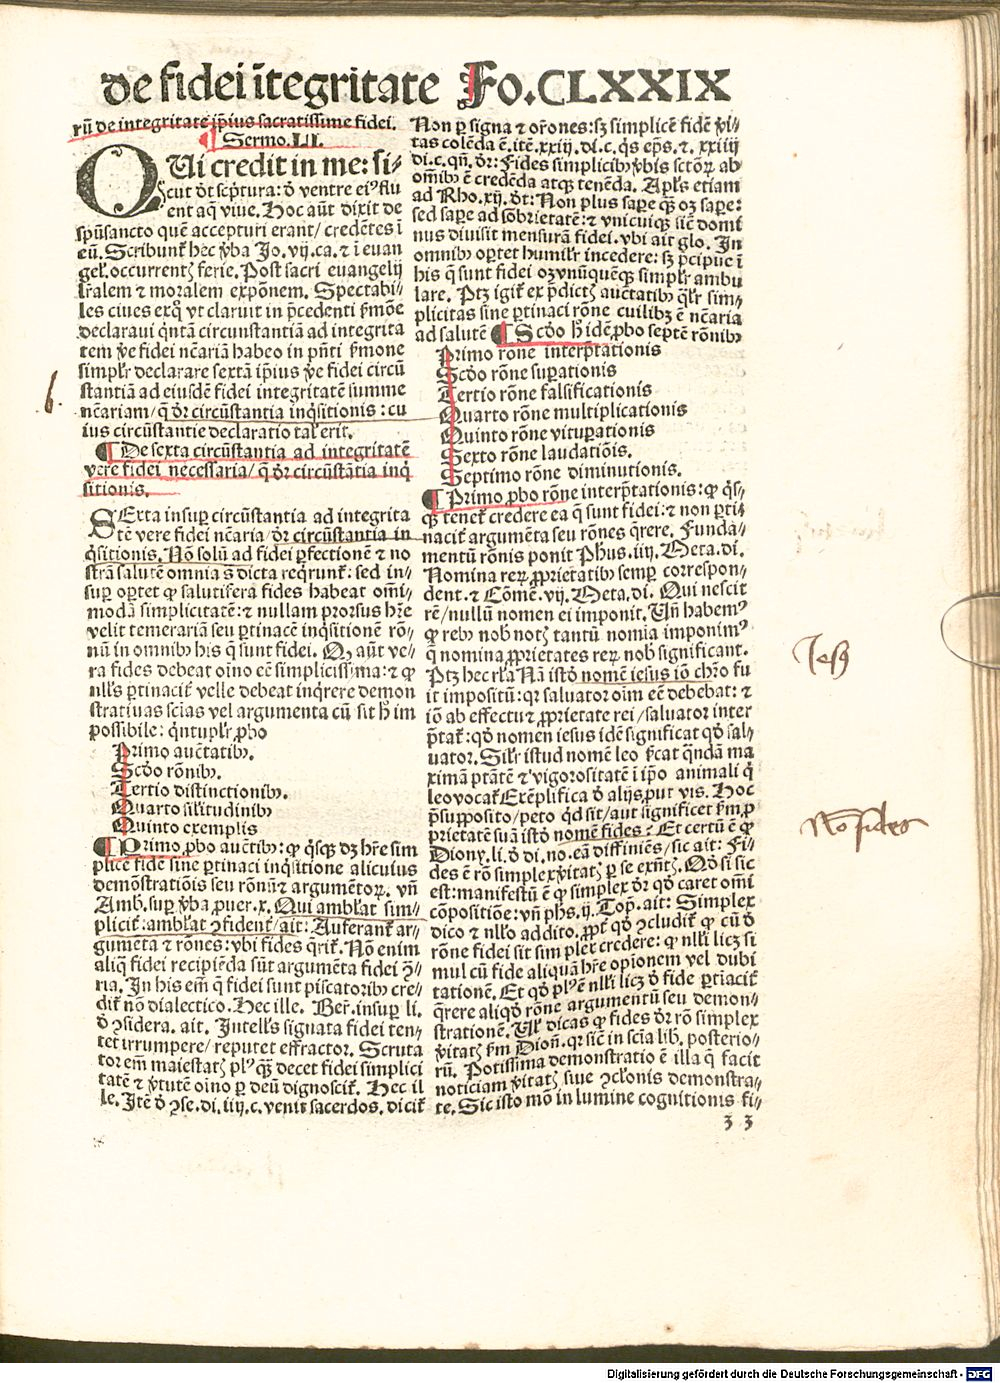 de fidei ītegritate Fo. CLXXIX
rū de integritate ip̄ius sacratissime fidei.
¶ Sermo. LI.
QUi credit in me: si⸗
cut dt̄ scp̄tura: d̄ ventre ei⁹ flu
ent aq̄ viue. Hoc aūt dixit de
spūsancto quē accepturi erant/ credētes ī
eū. Scribunt̄ hec v̄ba Jo. vij. ca. ⁊ ī euan
gel̄. occurrentꝭ ferie. Post sacri euangelij
lr̄alem ⁊ moralem expōnem. Spectabi⸗
les ciues exq̄ vt claruit in p̄cedenti ẜmōe
declaraui q̄ntā circunstantiā ad integrita
tem v̄e fidei nēariā habeo in pn̄ti ẜmone
simplr̄ declarare sextā ip̄ius v̄e fidei circū
stantiā ad eiusdē fidei integritatē summe
nēcariam/ q̄ dr̄ circūstantia inq̄sitionis: cu
ius circūstantie declaratio tal̄ erit.
¶ De sexta circūstantia ad integritatē
vere fidei necessaria/ q̄ dr̄ circūstātia inq̄
sitionis.
SExta insuꝑ circūstantia ad integrita
tē vere fidei nēaria/ dr̄ circūstantia in⸗
q̄sitionis. Nō solū ad fidei ꝑfectionē ⁊ no
strā salutē omnia s̄dicta req̄runt̄: sed in⸗
suꝑ oꝑtet ꝙ salutifera fides habeat om̄i⸗
modā simplicitatē: ⁊ nullam prorsus hr̄e
velit temerariā seu ꝑtinacē inq̄sitionē rō⸗
nū in omnibꝰ his q̄ sunt fidei. Qꝫ aūt ve⸗
ra fides debeat oīno eē simplicissima: ⁊ ꝙ
nll's ꝑtinacit̄ velle debeat inq̄rere demon
stratiuas scīas vel argumenta cū sit h̄ im
possibile: q̄ntuplr̄ ꝓbo
Primo auctatibꝰ.
Scd̄o rōnibꝰ.
Tertio distinctionibꝰ.
Quarto sil'itudinibꝰ
Quinto exemplis
¶ Primo ꝓbo auctibꝰ: ꝙ q̄sqꝫ dꝫ hr̄e sim
plicē fidē sine ꝑtinaci inq̄sitione alicuius
demōstratiōis seu rōnū ⁊ argumētoꝝ. vn̄
Amb. suꝑ v̄ba ꝓuer. x. Qui ambl'at sim⸗
plicit̄: ambl'at ꝯfident̄/ ait: Auferant̄ ar⸗
gumēta ⁊ rōnes: vbi fides q̄rit̄. Nō enim
aliq̄ fidei recipiēda sūt argumēta fidei ꝯ⸗
ria. In his em̄ q̄ fidei sunt piscatoribꝰ cre⸗
dit̄ nō dialectico. Hec ille. Ber̄. insuꝑ li.
d̄ ꝯsidera. ait. Intell's signata fidei ten⸗
tet irrumpere/ reputet effractor. Scruta
tor em̄ maiestatꝭ pl⁹ qꝫ decet fidei simplici
tatē ⁊ v̄tutē oīno ꝑ deū dignoscit̄. Hec il
le. Itē d̄ ꝯse. di. iiij. c. venit sacerdos. dicit̄
Non ꝑ signa ⁊ or̄ones: sꝫ simplicē fidē v̄i⸗
tas colēda ē. itē. xxiij. di. c. q̄s ep̄s. ⁊. xxiiij
di. c. qn̄. dr̄: Fides simplicibꝰ v̄bis sctōꝝ ab
om̄ibꝰ ē credēda atqꝫ tenēda. Apl's etiam
ad Rho. xij. dt̄: Non plus sapē qꝫ oꝫ sapē:
sed sapē ad sōbrietatē: ⁊ vnicuiqꝫ sic̄ domi
nus diuisit mensurā fidei. vbi ait glo. In
omnibꝰ oꝑtet humilr̄ incedere: sꝫ p̄cipue ī
his q̄ sunt fidei oꝫ vnūquēqꝫ simplr̄ ambu
lare. Ptꝫ igit̄ ex p̄dictꝭ auctatibꝰ q̄lr̄ sim⸗
plicitas sine ꝑtinaci rōne cuilibꝫ ē nēaria
ad salutē ¶ Scd̄o h̄ idē ꝓbo septē rōnibꝰ
Primo rōne interp̄tationis
Scd̄o rōne suꝑationis
Tertio rōne falsificationis
Quarto rōne multiplicationis
Quinto rōne vituꝑationis
Sexto rōne laudatiōis.
Septimo rōne diminutionis.
¶ Primo ꝓbo rōne interp̄tationis: ꝙ q̄s⸗
qꝫ tenet̄ credere ea q̄ sunt fidei: ⁊ non ꝑti⸗
nacit̄ argumēta seu rōnes q̄rere. Funda⸗
mentū rōnis ponit Ph̄us. iiij. Meta. di.
Nomina reꝝ ꝓprietatibꝰ semꝑ correspon⸗
dent. ⁊ Cōmē. vij. Meta. di. Qui nescit
rē/ nullū nomen ei imponit. Vn̄ habem⁹
ꝙ rebꝰ nob̄ notꝭ tantū nomīa imponim⁹
q̄ nomina ꝓprietates reꝝ nob̄ significant.
Ptꝫ hec rl'a Nā istd̄ nomē iesus iō chr̄o fu
it impositū: qr saluator oīm eē debebat: ⁊
iō ab effectu ⁊ ꝓprietate rei/ saluator inter
p̄tat̄: qd̄ nomen iesus idē significat qd̄ sal⸗
uator. Silr̄ istud nomē leo ẜcat q̄ndā ma
ximā ptātē ⁊ vigorositatē ī ip̄o animali q̄
leo vocat̄ Exēplifica d̄ alijs, put vis. Hoc
p̄supposito/ peto qd̄ sit/ aut significet ẜm ꝓ
prietatē suā istd̄ nomē fides? Et certū ē ꝙ
Diony. li. d̄ di. no. eā diffiniēs/ sic ait: Fi⸗
des ē rō simplex v̄itatꝭ ꝑ se exn̄tꝭ. Qd̄ si sic
est: manifestū ē ꝙ simplex dr̄ qd̄ caret om̄i
cōpositiōe: vn̄ ph̄s. ij. Top̄. ait: Simplex
dico ⁊ nll'o addito. ꝓpt̄ qd̄ ꝯcludit̄ ꝙ cū d̄
rōne fidei sit simplex credere: ꝙ nll'i licꝫ si
mul cū fide aliquā hr̄e opionem vel dubi
tationē. Et qd̄ pl⁹ ē nll'i licꝫ d̄ fide ꝑtīacit̄
q̄rere aliqd̄ rōne argumentū seu demon⸗
strationē. Vl' dicas ꝙ fides dr̄ rō simplex
v̄itatꝭ ẜm Dion̄. qr sic̄ in scīa lib. posterio⸗
rū. Potissima demonstratio ē illa q̄ facit
noticiam v̄itatꝭ siue ꝯcl'onis demonstra⸗
te. Sic isto mō in lumine cognitionis fi⸗
ꝫ 3
.6.
Jesꝰ
No fides
Digitalisierung gefördert durch die Deutsche Forschungsgemeinschaft - DFG